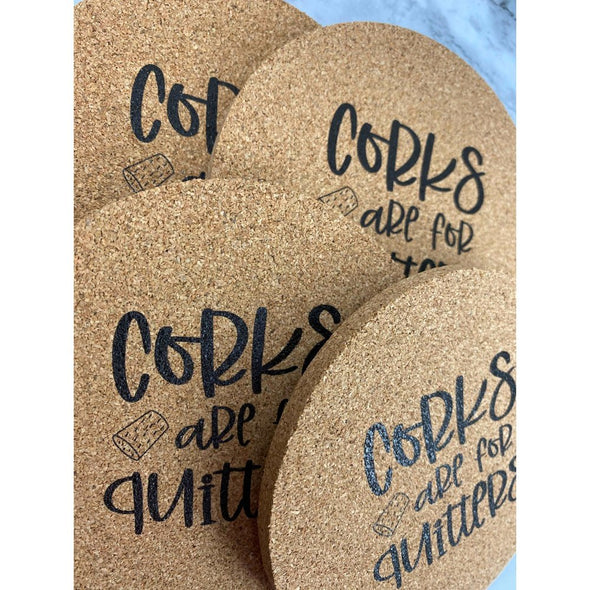 CORKS
ARE FOR
CORKS
ARE
QUITTERS
CORKS
ARE FOR
QUITTERS